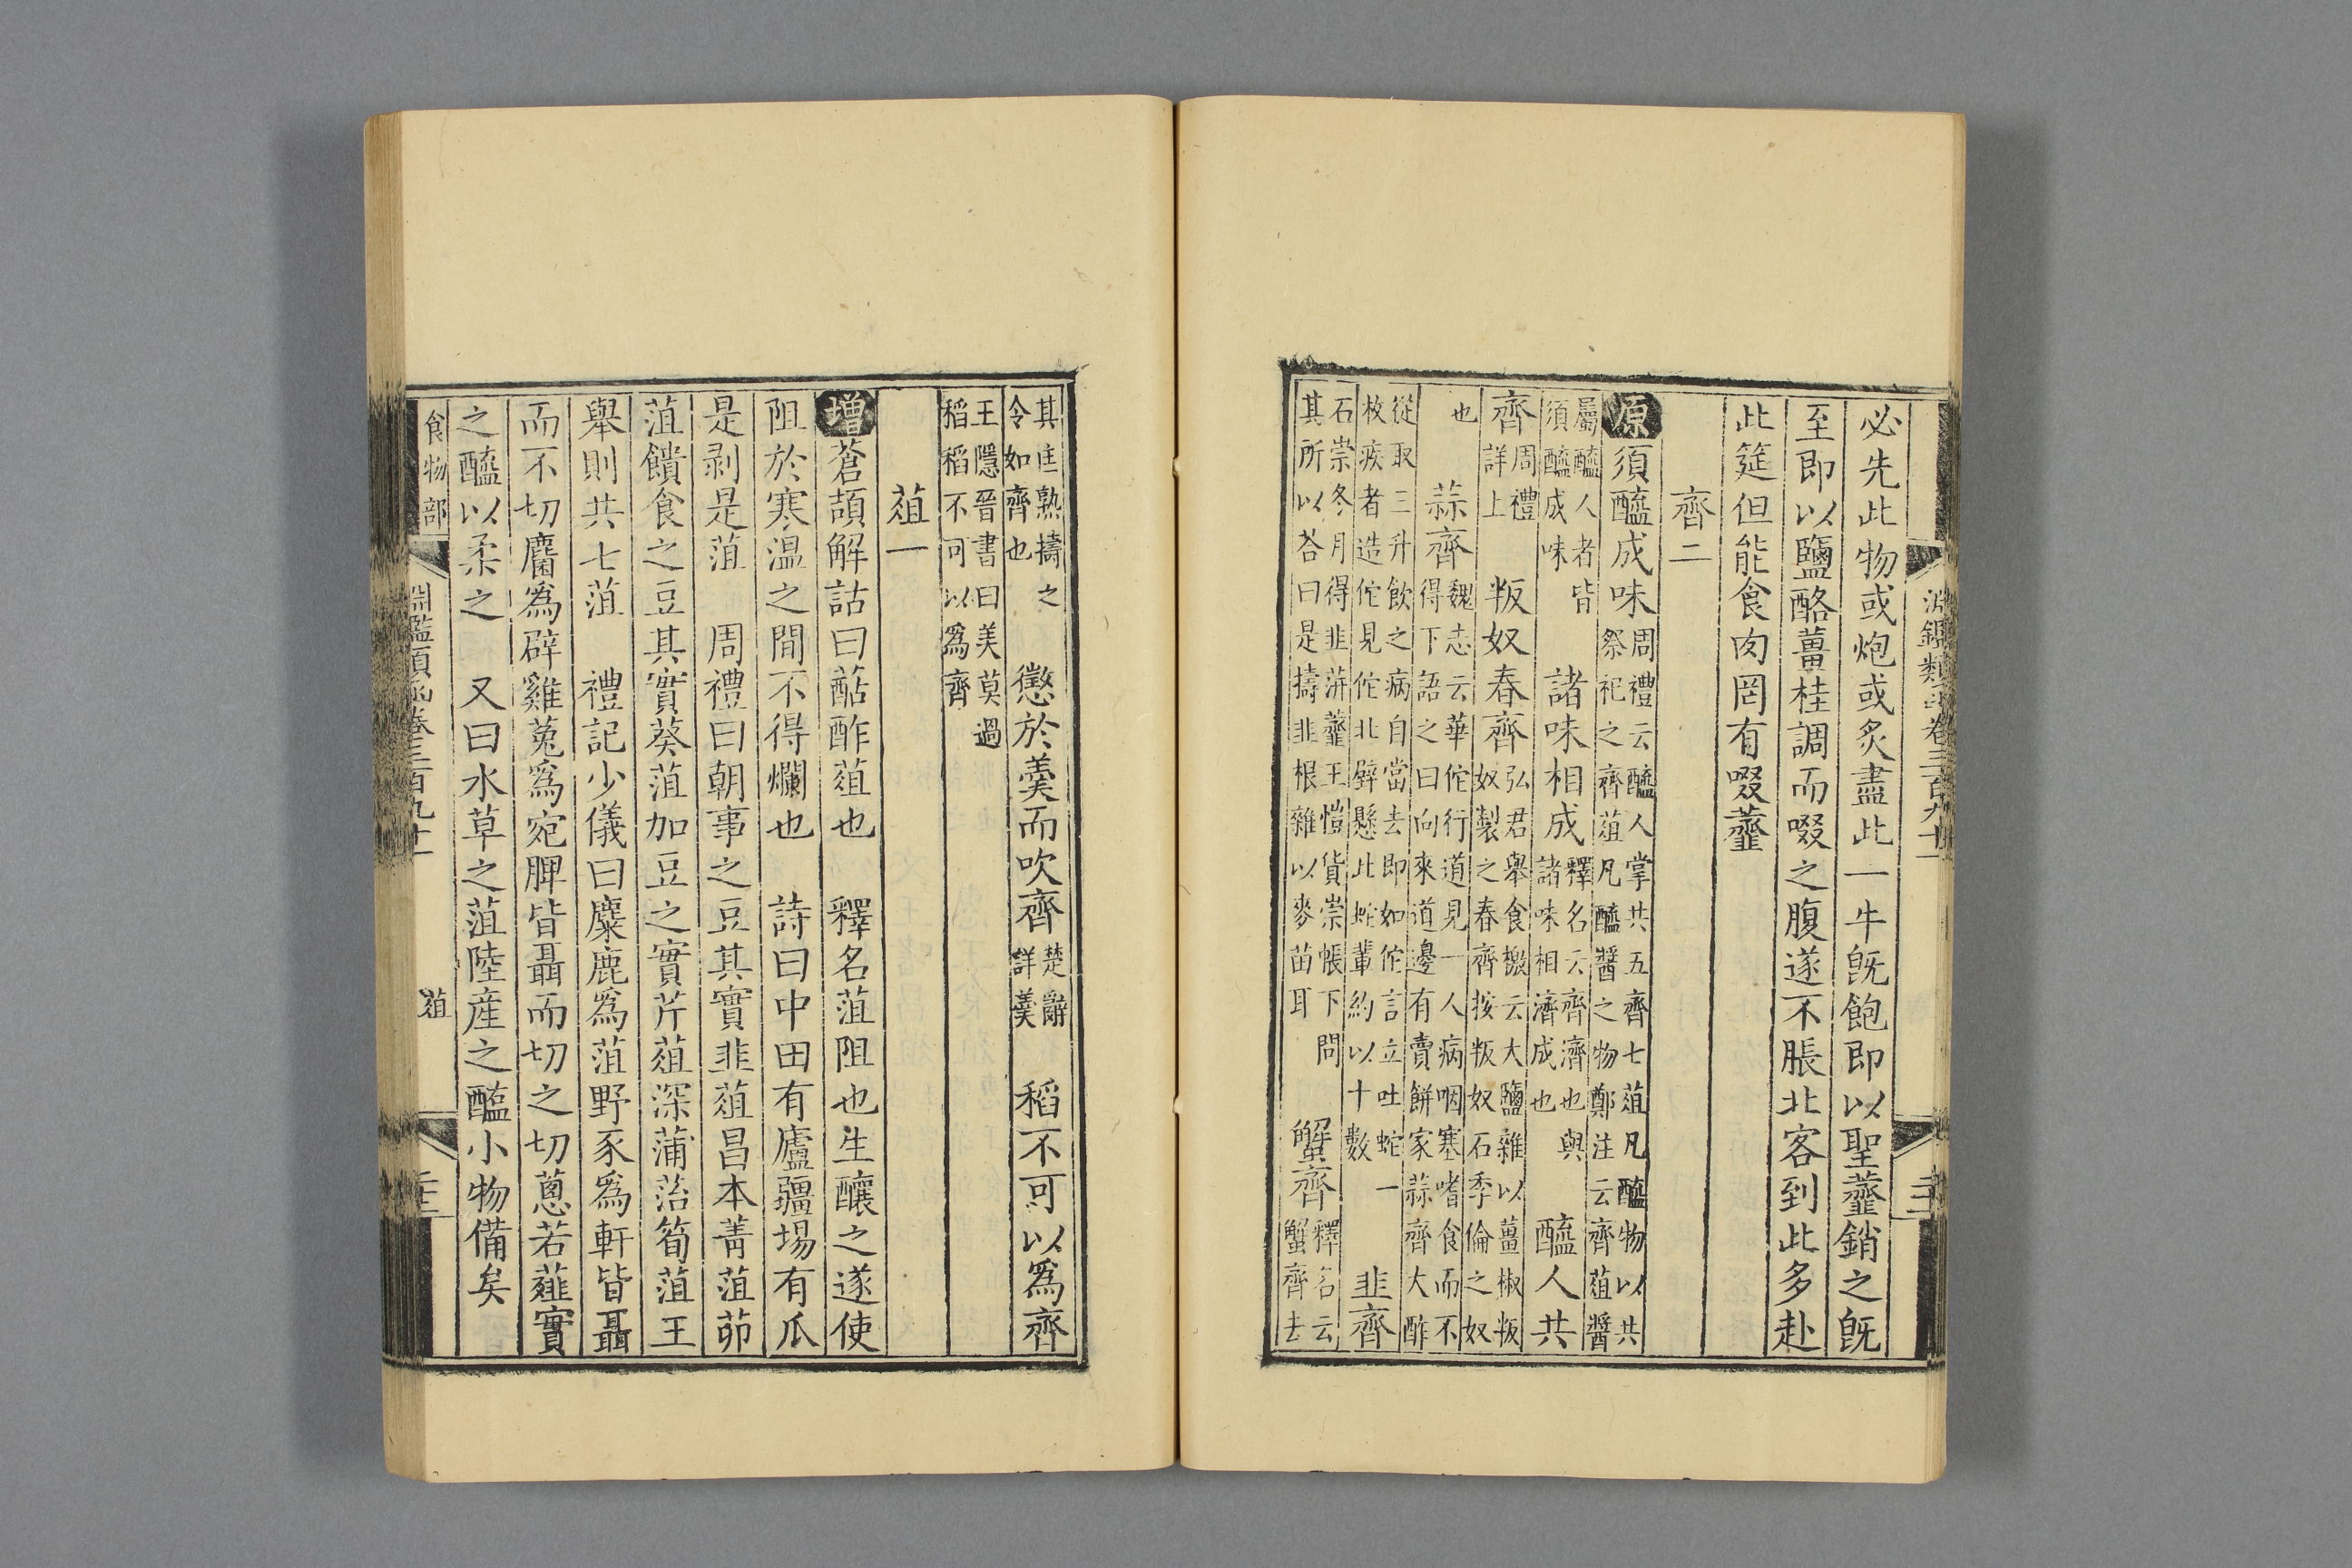 淵鑑類函卷三百九十一
必先此物或炮或炙盡此一牛旣飽即以聖虀銷之旣
至即以鹽酪薑桂調而啜之腹遂不脹北客到此多赴
此筵但能食肉罔有啜虀
齊二
原須醯成味周禮云醯人掌共五齊七葅凡醯物以共祭祀之齊葅凡醯醬之物鄭注云齊葅醬
屬醯人者皆須醯成味 諸味相成釋名云齊濟也與諸味相濟成也 醯人共
齊周禮詳上 叛奴春齊弘君舉食檄云大鹽雜以薑椒叛奴製之春齊按叛奴石季倫之奴
也 蒜齊魏志云華佗行道見一人病咽塞嗜食而不得下語之曰向來道邊有賣餅家蒜齊大酢
從取三升飲之病自當去即如佗言立吐蛇一枚疾者造佗見佗北壁懸此蛇輩約以十數 韭齊
石崇冬月得韭蓱虀王愷貨崇帳下問其所以荅曰是擣韭根雜以麥苗耳 蟹齊釋名云蟹齊去
其匡熟擣之令如齊也 懲於羹而吹齊楚辭詳羹 稻不可以爲齊
王隱晉書曰美莫過稻稻不可以爲齊
葅一
增蒼頡解詁曰䣶酢葅也 釋名菹阻也生釀之遂使
阻於寒溫之間不得爛也 詩曰中田有廬疆埸有瓜
是剥是菹 周禮曰朝事之豆其實韭葅昌本菁菹茆
菹饋食之豆其實葵菹加豆之實芹葅深蒲菭筍菹王
舉則共七菹 禮記少儀曰麋鹿爲菹野豕爲軒皆聶
而不切麕爲辟雞菟爲宛脾皆聶而切之切蔥若薤實
之醯以柔之 又曰水草之菹陸産之醢小物備矣
食物部 淵鑑類函卷三百九十一 葅